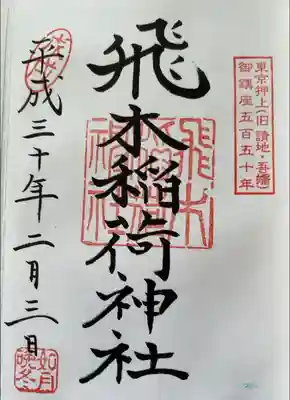 東京押上(旧請地・吾嬬)
御鎮座五百五十年
飛木稲荷神社
飛木稲荷神社
平成三十年二月三日
如月